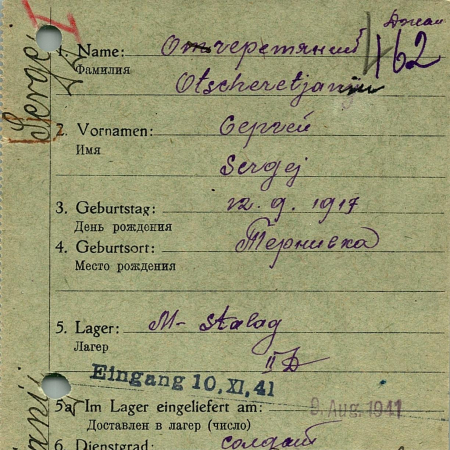 462
1. Name: Отчеретяний
Фамилия
Otscheretjanij
2. Vornamen: Сергей
Имя
Sergej
3. Geburtstag: 12. 9. 1917
День рождения
4. Geburtsort: Тернивка
Место рождения
5. Lager: M- Stalag
Лагер
II D
Eingang 10. XI. 41
5a. Im Lager eingeliefert am: 9. Aug. 1941
Доставлен в лагер (число)
6. Dienstgrad: солдат